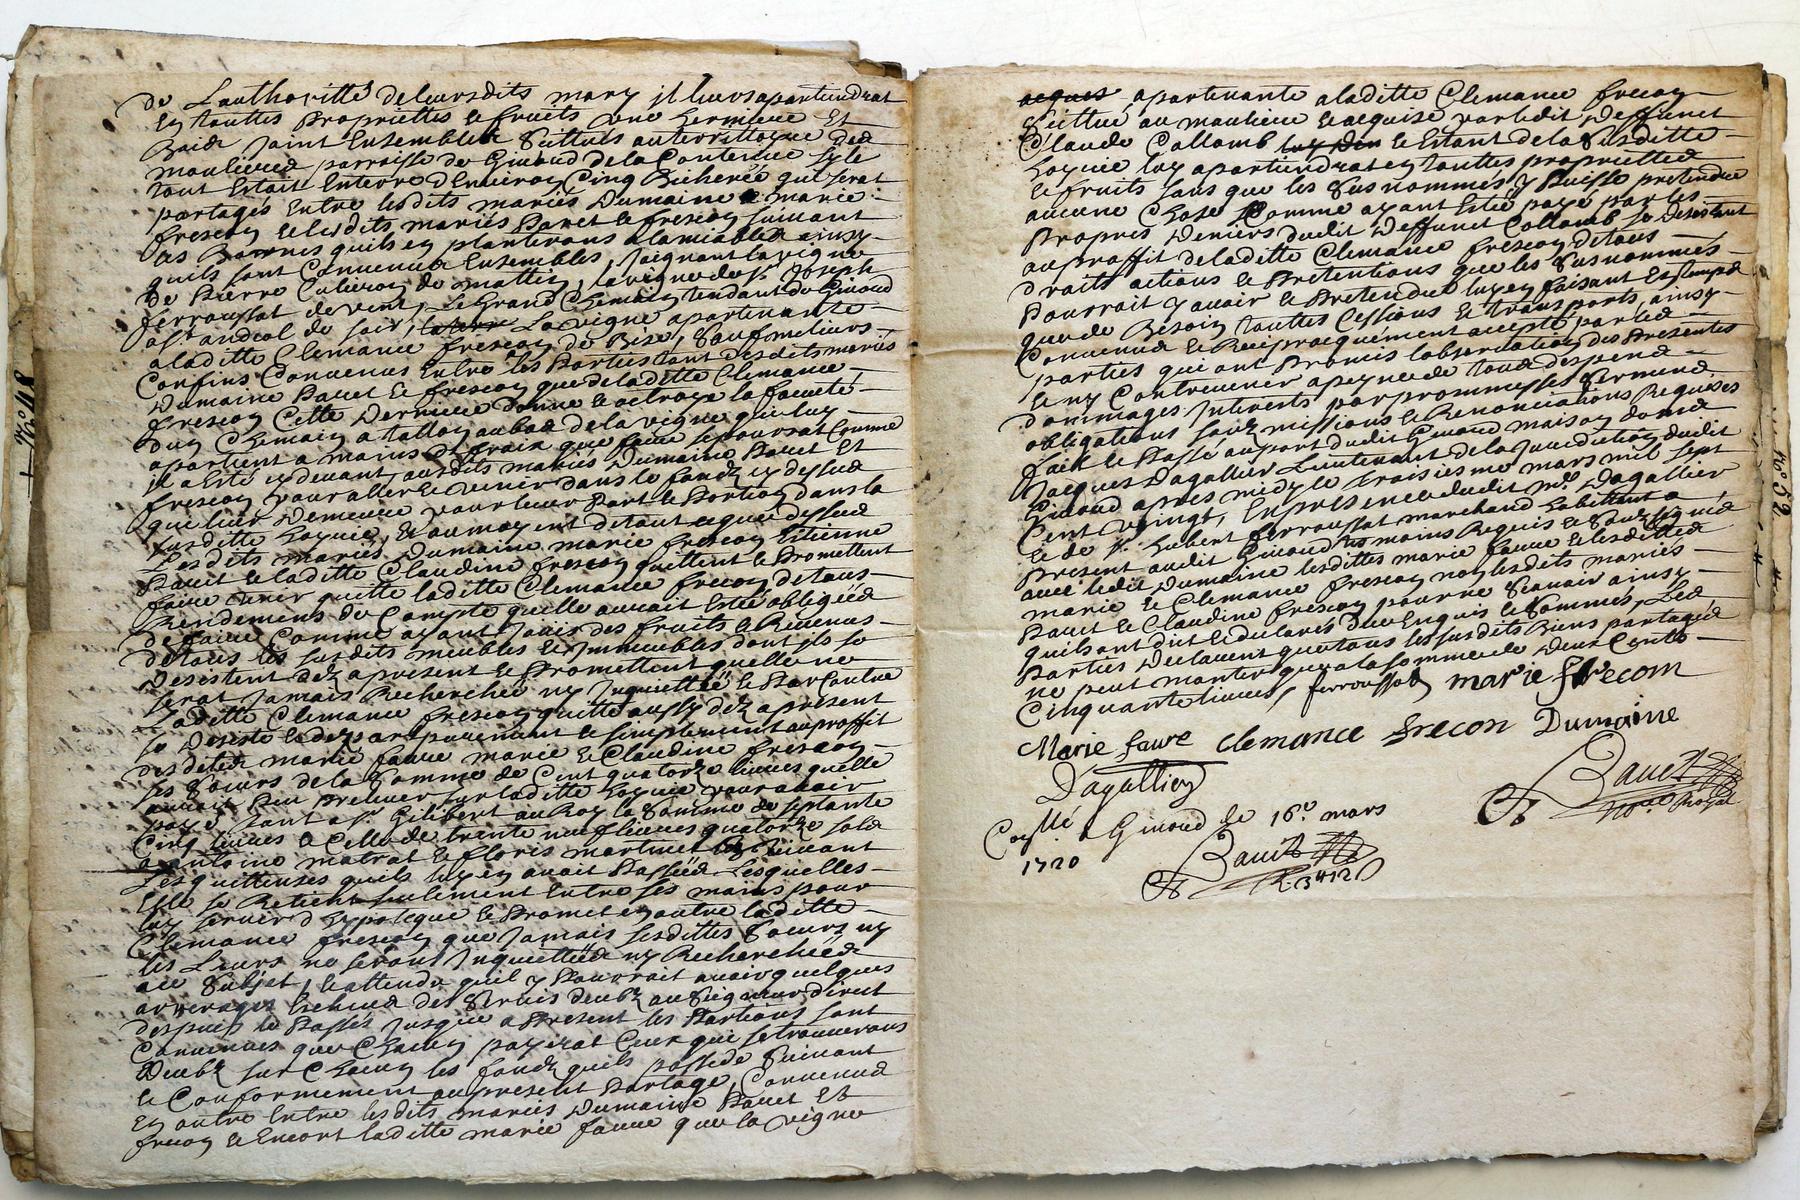 de Lauthoritté de leursdits mary jl leurs apartiendrat
En touttes Proprietés & fruits une Terre et
Bois Joint Ensembles Scittués au territtoire des
moulieres parroisse de Givaud de la Contenue
tout Estant Enterre d'Environ Cinq Bicherées qui seront
partagés Entre lesdits mariés Dumaine & marie
frescon & lesdits mariés Bavet & frescon suivant
les Bornes quils en planterons a lamiables ainsy
quils sont Convenus Ensembles, Joignant la vigne
de Pierre de mattin, la vigne de sr Joseph
ferroussat de vent, Le Grand Chemin tendant de Givaud
a st andeol de soir, La vigne apartenante
a laditte Clemance frescon de Bise, Sauf meilleurs
Confins Convenus Entre les Parties tant desdits mariés
Dumaine Bavet & frescon que de laditte Clemance
frescon Cette Derniere donne & octroye la faculté
d'un Chemin a tallon au bas de la vigne qui luy
apartient a moins de fraix que faire se pourrat Comme
jl a Esté cy devant, ausdits mariés Dumaine Bavet et
frescon pour aller & venir dans le fondz cy dessus
qui leur Demeure pour leur Part & Portion dans la
susditte hoyrie, & au moyent de tout ce que dessus
Lesdits mariés Dumaine marie frescon Estienne
Bavet & laditte Claudine frescon quittent & Promettent
faire tenir quitte laditte Clemance frecon de tous
Rendements de Compte quelle auroit Esté obligée
de faire Comme ayant Jouis des fruits & Revenus
de tous les susdits meubles & jmmeubles dont jls se
Desistent dez apresent & Promettent quelle ne
serat Jamais Recherchée ny Jnquiettée & Par Contre
laditte Clemance frescon quitte aussy dez apresent
se Desiste & departs purement & simplement au proffit
desdittes marie faure marie & Claudine frescon
ses Soeurs de la Somme de Cent quatorze livres quelle
auroit Peu Prelever sur laditte hoyrie pour avoir
payé tant a sr Gilibert au Roy la Somme de septante
Cinq livres & Celle de trente neuf livres quatorze sols
a antoine matrat & floris martinet suivant
Les quittances quils luy en avoit Passées Lesquelles
Elle se Retient seulement Entre ses mains pour
luy servir d'hypoteque & Promet en outre laditte
Clemance frescon que Jamais sesdittes Soeurs ny
les Leurs ne seront Jnquiettées ny Recherchées
a ce Subjet, & attendu quil y Pourroit avoir quelques
arrerages Echeus des Servis deubz au Seigneur direct
despuis le Passés Jusque a Present les Parties sont
Convenues que Chacun payerat Ceux qui se trouverons
Deubz sur Chacun les fondz quils possede Suivant
& Conformement au present Partage, Convenus
En outre Entre lesdits mariés Dumaine Bavet Et
frecon & Encore laditte marie faure que la vigne
acquis apartenante a laditte Clemance frecon
Scittué au mouliere & acquise par ledit Deffunct
Claude Collomb & Estant de la Susditte
hoyrie luy apartiendrat en touttes proprietés
& fruits sans que les Susnommés y Puisse pretendre
aucune Chose Comme ayant Esté payé par les
Propres Deniers dudit Deffunct Collomb se desistant
au proffit de laditte Clemance frescon de tous
droits actions & Pretentions que les Susnommés
Pourrait y avoir & Pretendre luy en faisant
que de Besoin touttes Cessions & transports, ainsy
Convenus & Reciproquement accepté par les
parties qui ont Promis l'observation des Presentes
& ny Contrevenir a peyne de tous despens
dommages Jnterests par prommesses Serments
obligations soubzmissions & Renonciations Requises
fait & Passé au port dudit Givaud maison dudit
Jacques Dagallier Lieutenant de la Jurisdiction dudit
Givaud apres midy le troisiesme mars mil sept
Cent vingt, En presence dudit mre Dagallier
& de sr hubert ferroussat marchand habittant a
present audit Givaud tesmoins Requis & soubzsignés
avec ledit Dumaine lesdittes marie faure & lesdittes
marie & Clemance frescon non lesdits mariés
Bavet & Claudine frescon pour ne Scavoir ainsy
quils ont dict & declarés deue Enquis & Sommés, Les
Parties Declarent que tous les susdits Biens partagés
ne peut monter que a la somme de Deux Cents
Cinquante livres, ferroussat marie frecom
Marie faure Clemance Frecon Dumaine
Dagallier Bavet
no.re Royal
Con.llé a Givaud le 16e. mars
1720
Bavet
R. 3tt 12s
No 48
No 52